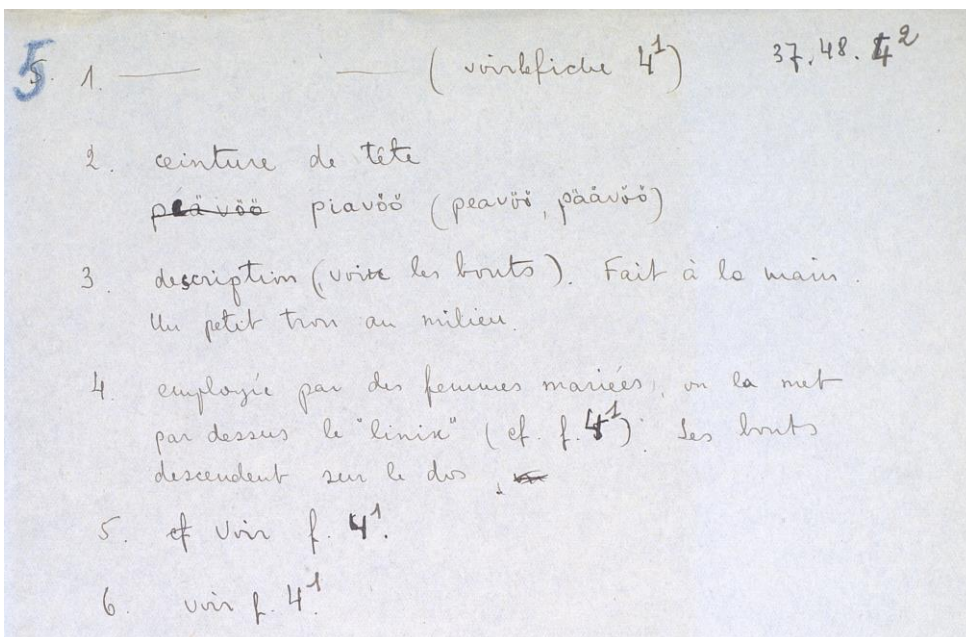 5 5. 1. — — (voir fiche 4¹) 37.48.4²
2. ceinture de tête
peävöö piavöö (peavöö, päävöö)
3. description (voir les bouts). Fait à la main.
Un petit trou au milieu.
4. employée par des femmes mariées, on la met
par dessus le "linik" (cf. f. 4¹). Les bouts
descendent sur le dos,
5. cf voir f. 4¹.
6. voir f. 4¹.